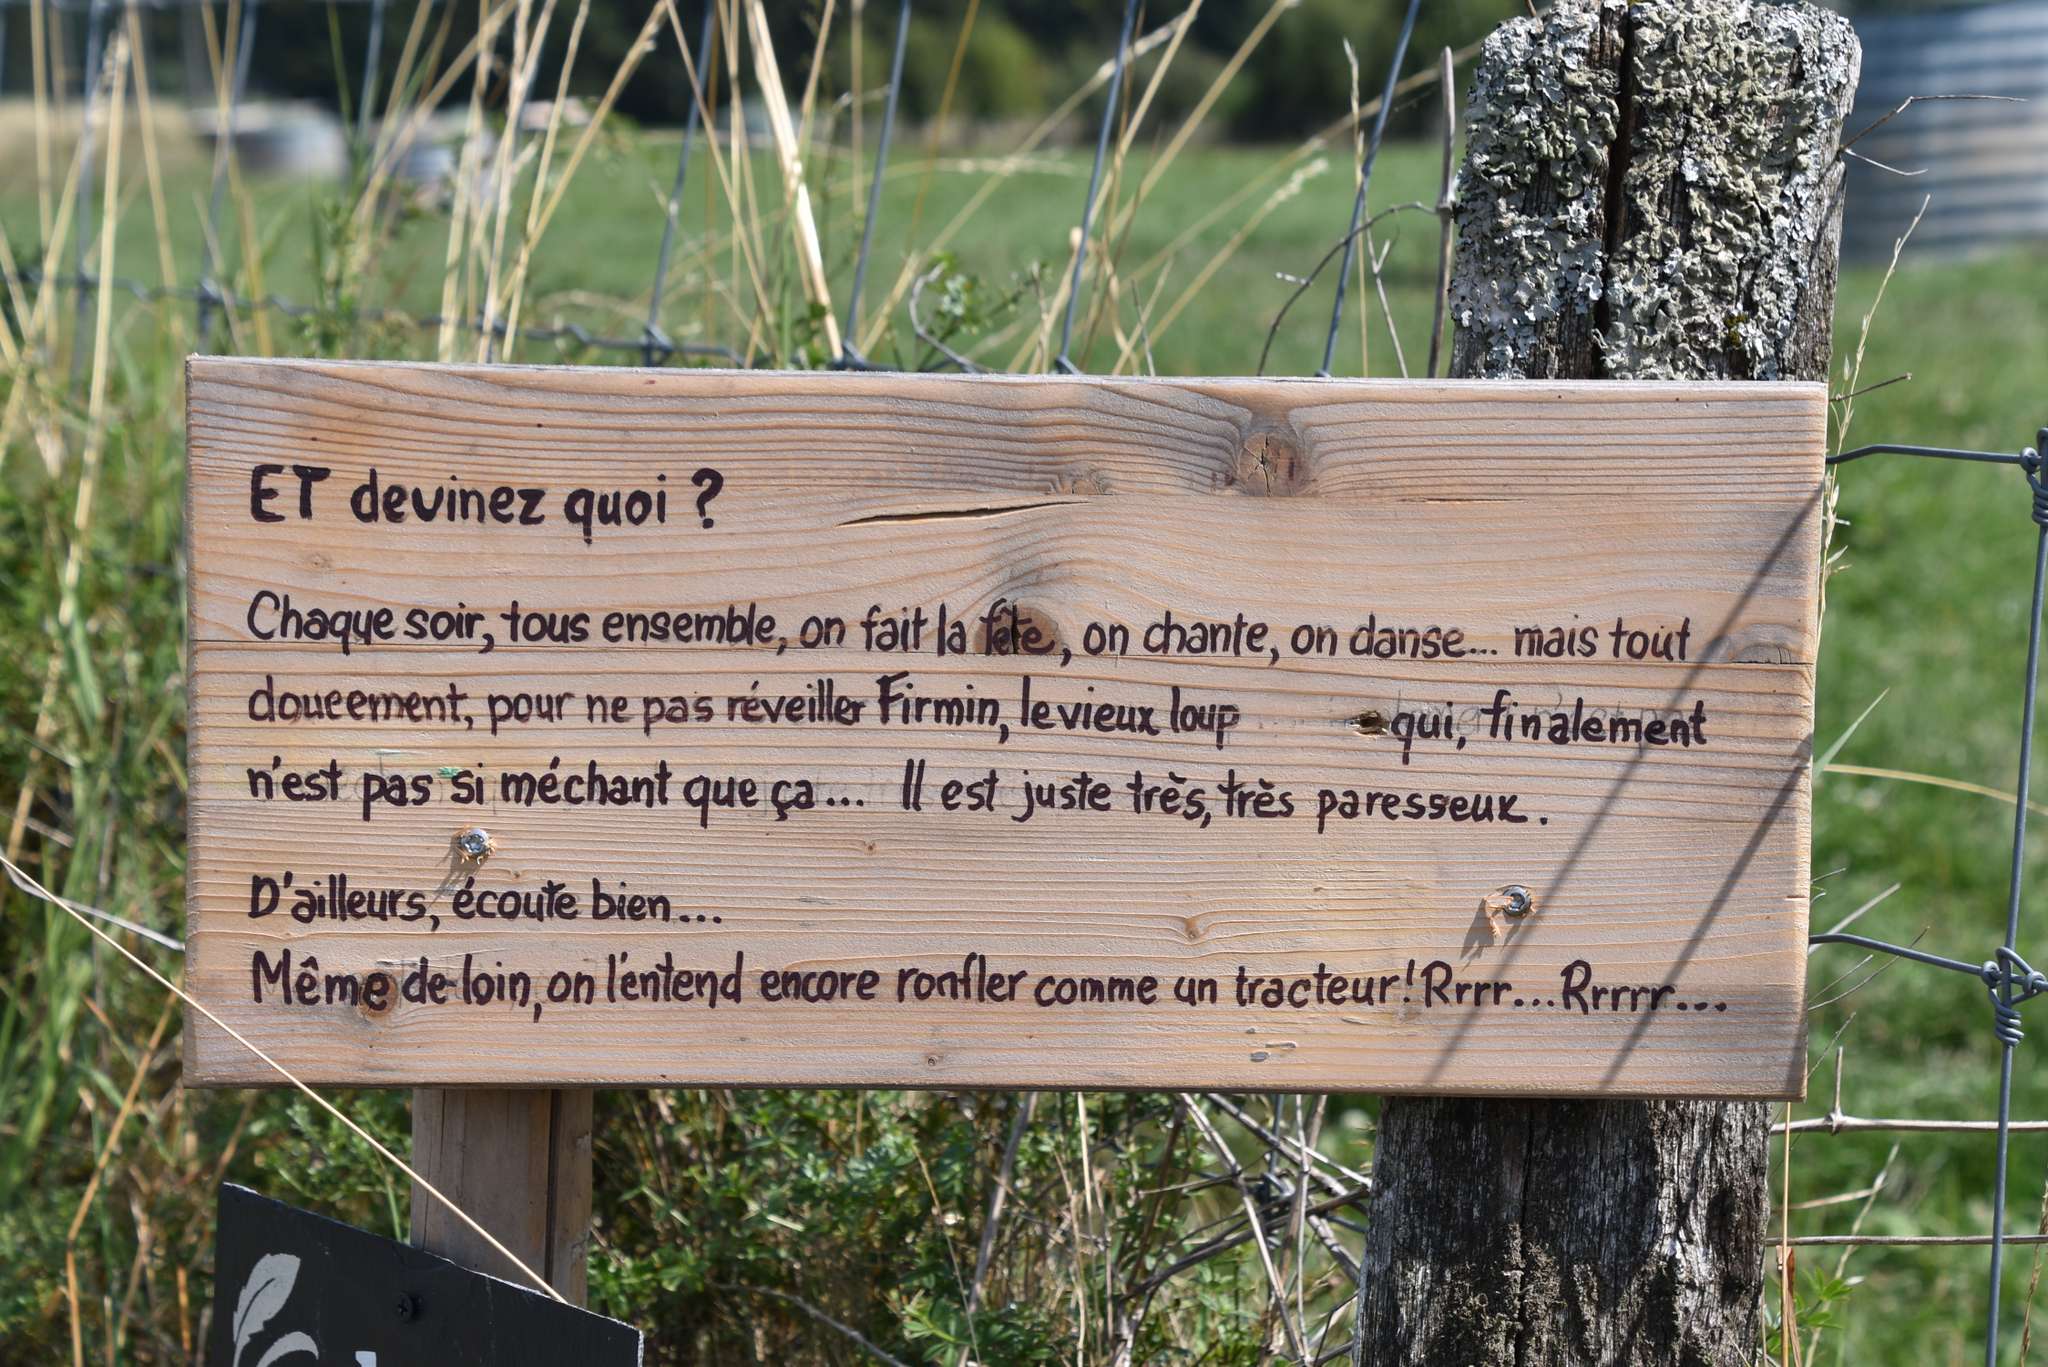 ET devinez quoi ?
Chaque soir, tous ensemble, on fait la fête, on chante, on danse... mais tout
doucement, pour ne pas réveiller Firmin, le vieux loup qui, finalement
n'est pas si méchant que ça... Il est juste très, très paresseux.
D'ailleurs, écoute bien...
Même de loin, on l'entend encore ronfler comme un tracteur! Rrrr... Rrrrr...